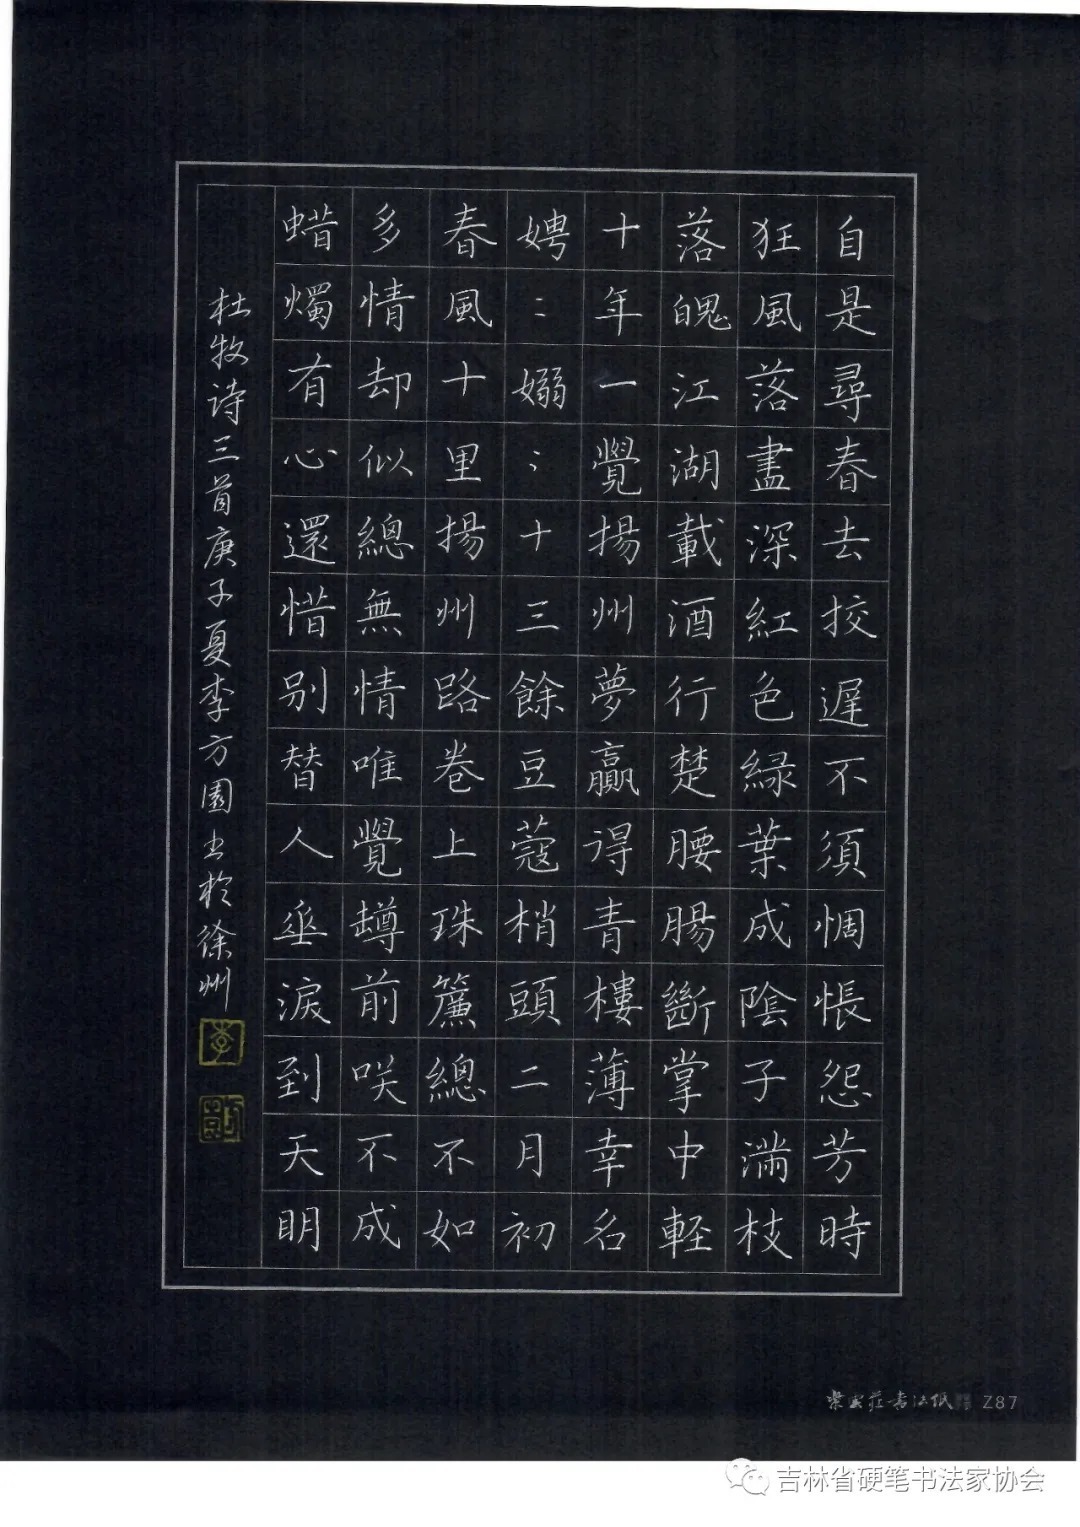 自是尋春去挍遲不須惆悵怨芳時
狂風落盡深紅色緑葉成陰子滿枝
落魄江湖載酒行楚腰腸斷掌中軽
十年一覺揚州夢贏得青樓薄幸名
娉：嫋；十三餘豆蔻梢頭二月初
春風十里揚州路卷上珠簾總不如
多情却似總無情唯覺罇前咲不成
蜡燭有心還惜别替人垂淚到天明
杜牧诗三首庚子夏李方園书於徐州
李
Z87
吉林省硬笔书法家协会